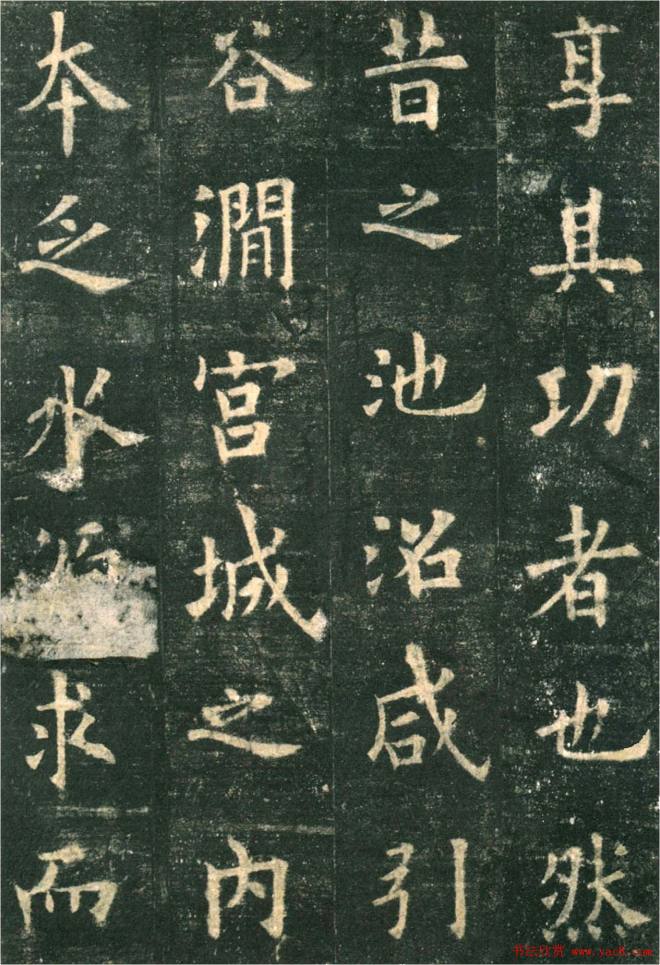 享其功者也然
昔之池沼咸引
谷澗宮城之内
本乏水求而
书法欣赏 www.yac8.com